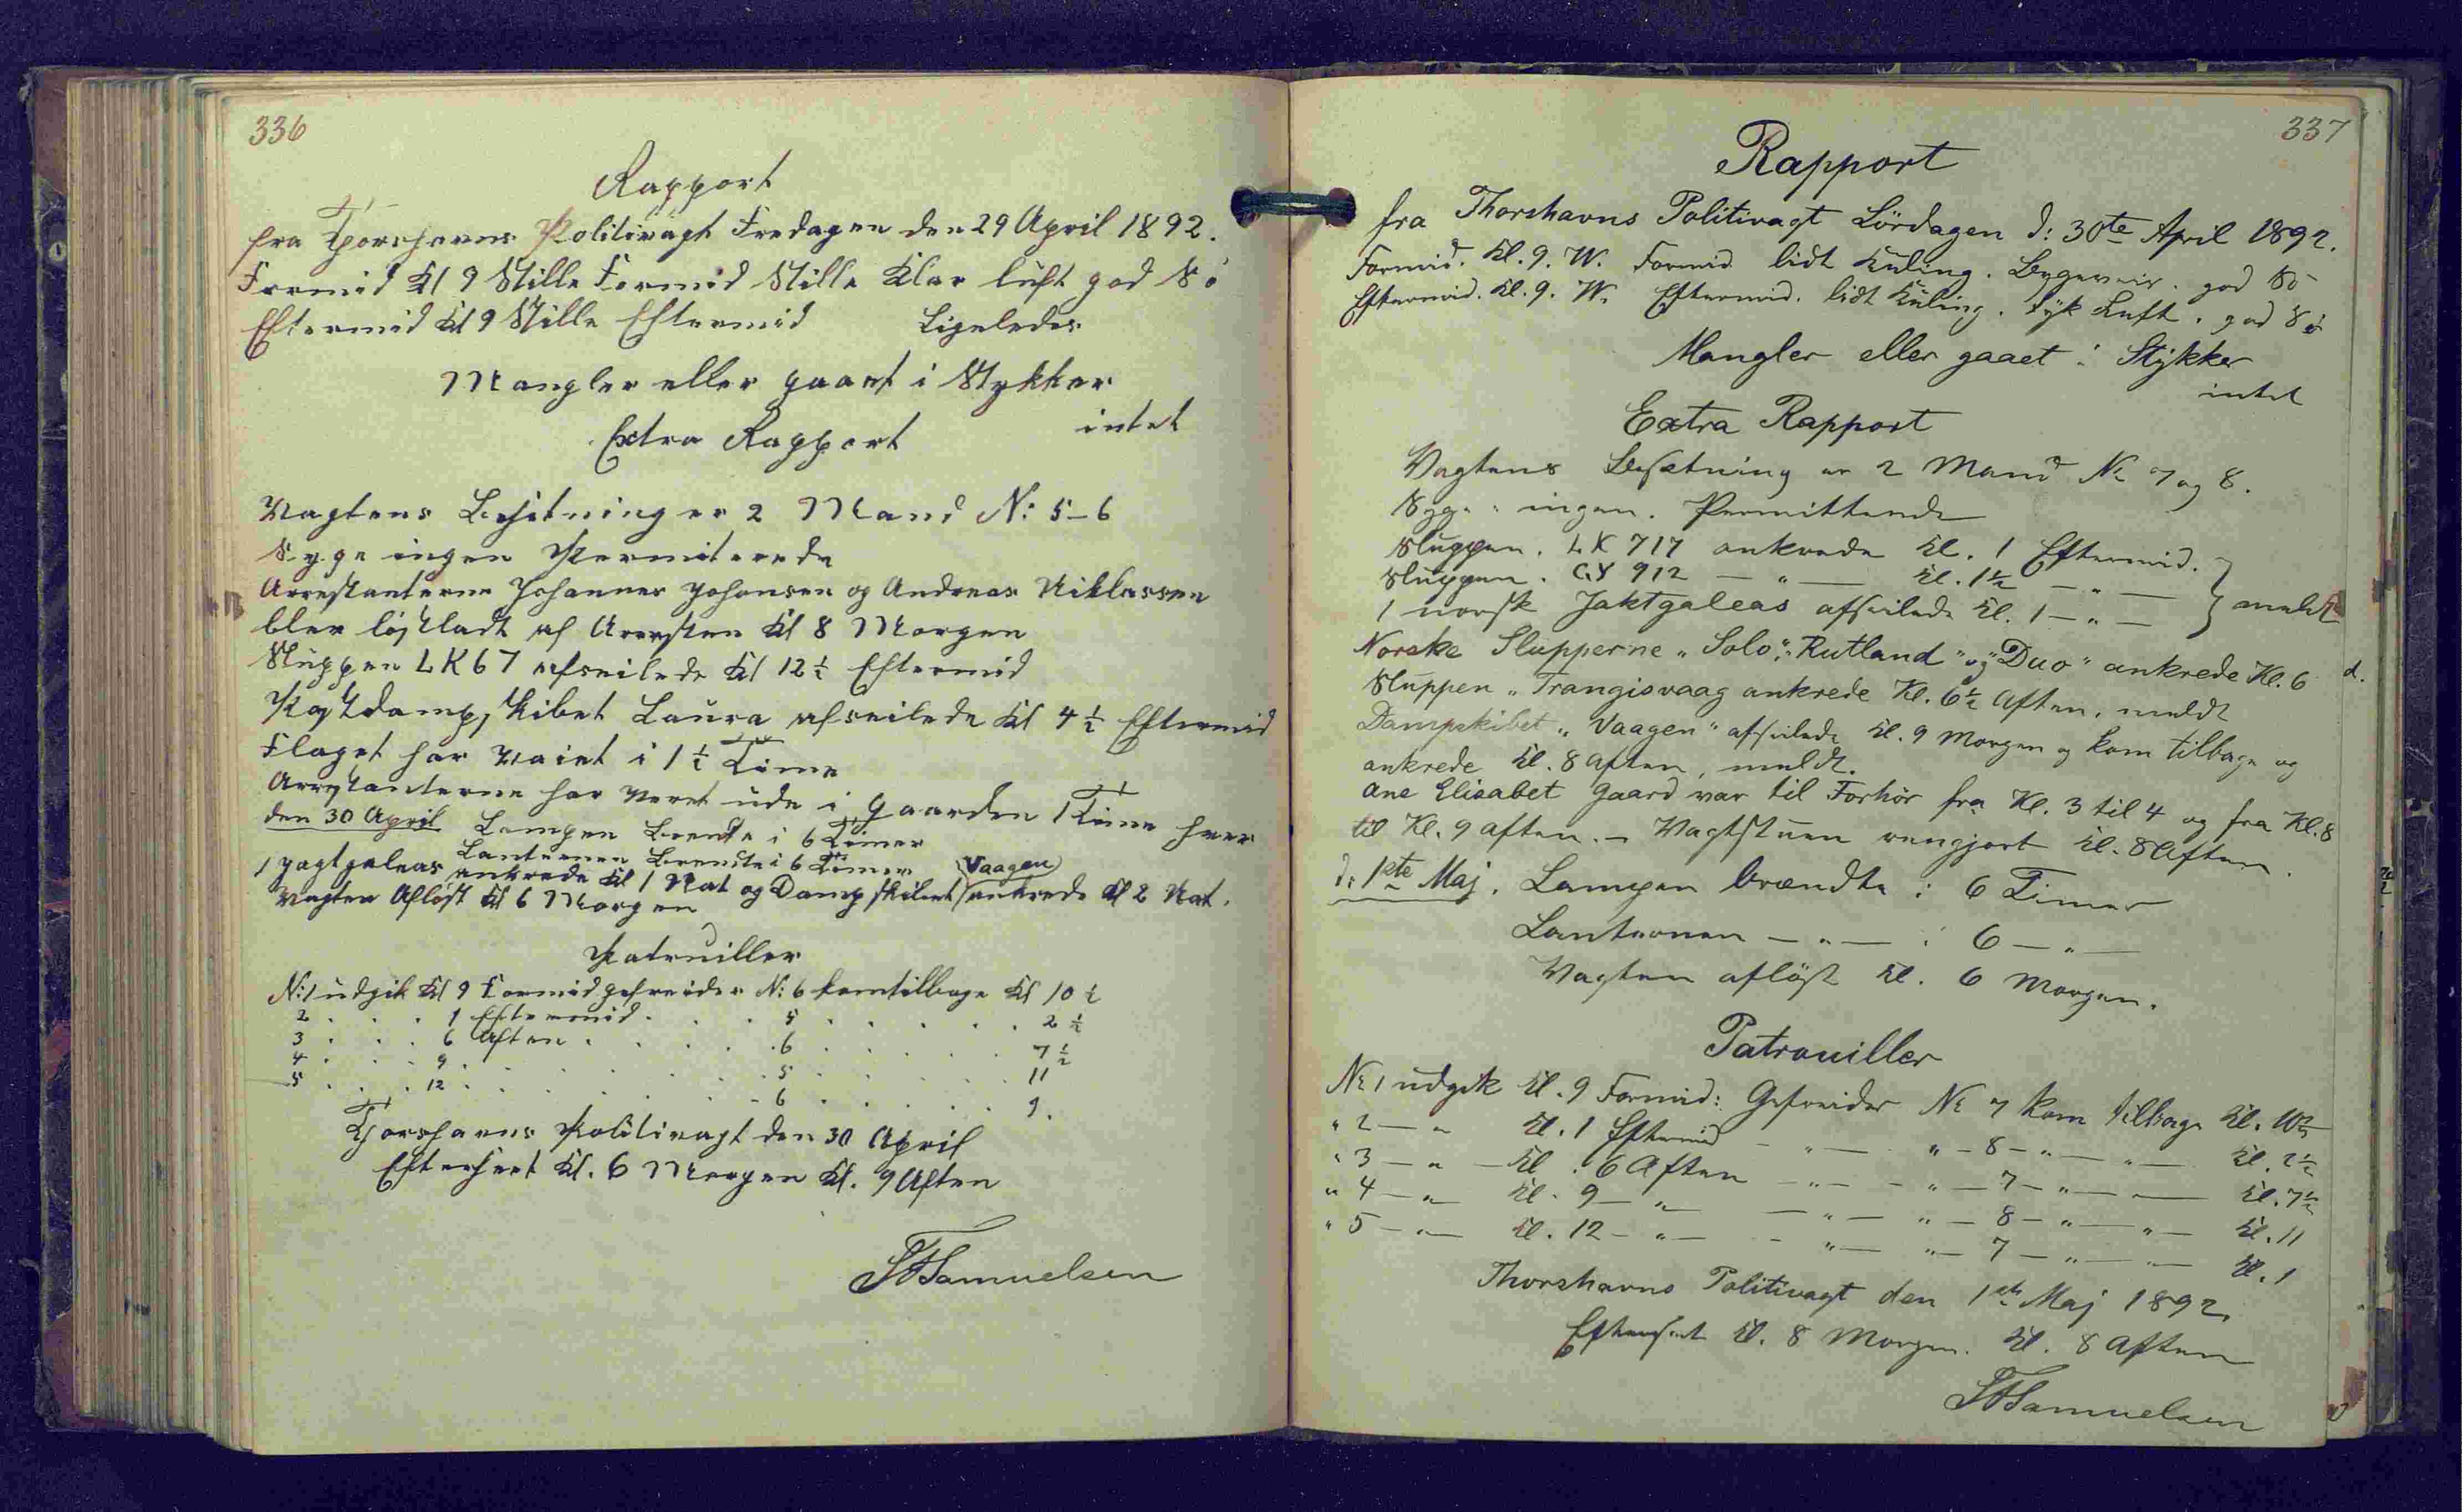 336
Rapport
fra Thorshavns Politivagt Fredagen den 29 April 1892.
Formid Kl 9 Stille Formid Stille Klar luft god Sö
Eftermid Kl 9 Stille Eftermid Ligeledes
Mangler eller gaaet i Stykker
intet
Extra Rapport
Vagtens Besetning er 2 Mand N: 5-6
Syge ingen Permiterede
Arrestanterne Johannes Johansen og Andreas Niklassen
blev löslladt af Arresten Kl 8 Morgen
Sluppen LK 67 afseilede Kl 12½ Eftermid
Postdampskibet Laura afseilede Kl 4½ Eftermid
Flaget har vaiet i 1½ Time
Arrestanterne har veret ude i Gaarden 1 Time hver
den 30 April Lampen Brendte i 6 Timer
Lanternen Brendte i 6 Timer
1 Jagtgaleas ankrede Kl 1 Nat og Dampskibet Vaagen ankrede Kl 2 Nat.
Vagten Aflöst Kl 6 Morgen
Patruiller
N: 1 udgik Kl 9 Formid gefreider N: 6 kom tilbage Kl 10½
2 . . . 1 Eftermid . . . 5 . . . . . 2½
3 . . . 6 Aften . . . . 6 . . . . . 7½
4 . . . 9 . . . . . 5 . . . . . 11
5 . . . 12 . . . . . 6 . . . . . 1.
Thorshavns Politivagt den 30 April
Efterseet Kl. 6 Morgen Kl. 9 Aften
Samuelsen
337
Rapport
fra Thorshavns Politivagt Lördagen d: 30te April 1892.
Formid. Kl. 9. W. Formid lidt Kuling. Bygeveir. god Sö
Eftermid. Kl. 9. W. Eftermid. lidt Kuling. tyk Luft. god Sö
Mangler eller gaaet i Stykker
intet
Extra Rapport
Vagtens Besætning er 2 Mand No 7 og 8.
Syge ingen. Permitterede
Sluppen. LK 717 ankrede Kl. 1 Eftermid.
Sluppen. GY 912 — " — Kl. 1½ — " —
1 norsk Jaktgaleas afseilede Kl. 1 — " — } meldt
Norske Slupperne "Solo", "Rutland" og "Duo" ankrede Kl. 6 d.
Sluppen "Trangisvaag ankrede Kl. 6½ Aften, meldt
Dampskibet "Vaagen" afseilede Kl. 9 Morgen og kom tilbage og
ankrede Kl. 8 Aften, meldt.
Ane Elisabet Gaard var til Forhör fra Kl. 3 til 4 og fra Kl. 8
til Kl. 9 Aften. – Vagtstuen rengjort Kl. 8 Aften.
d: 1ste Maj. Lampen brændte i 6 Timer
Lanternen — " — i 6 — " —
Vagten aflöst Kl. 6 Morgen.
Patrouiller
No 1 udgik Kl. 9 Formid: Gefreider No 7 kom tilbage Kl. 10½
" 2 — " Kl. 1 Eftermid — " — " — 8 — " — " — Kl. 2½
" 3 — " — Kl. 6 Aften — " — " — 7 — " — — Kl. 7½
" 4 — " — Kl. 9 — " — — " — " — 8 — " — " — Kl. 11
" 5 — " — Kl. 12 — " — — " — " — 7 — " — " — Kl. 1
Thorshavns Politivagt den 1ste Maj 1892.
Efterseet Kl. 8 Morgen. Kl. 8 Aften
Samuelsen